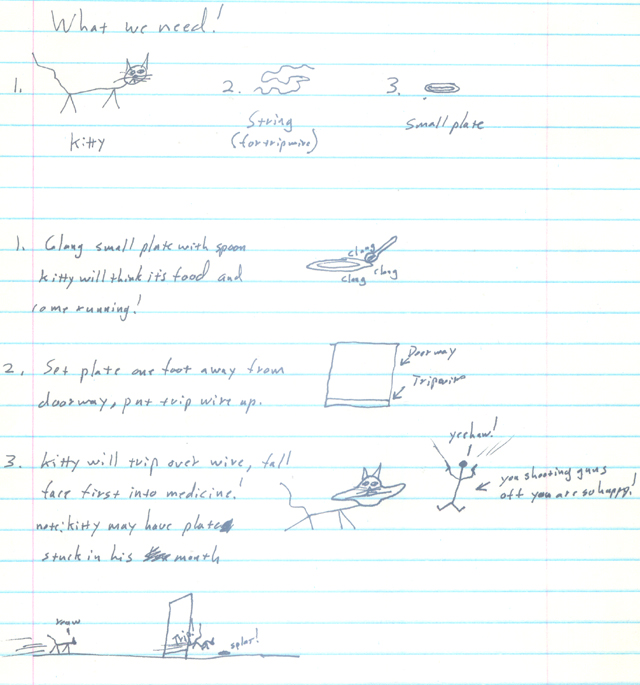 What we need!
1.
2.
3.
Kitty
String
(for tripwire)
small plate
1. Clang small plate with spoon
kitty will think its food and
come running!
clang
clang
clang
2. Set plate one foot away from
doorway, put trip wire up.
Doorway
Tripwire
3. kitty will trip over wire, fall
face first into medicine!
note: kitty may have plate
stuck in his mouth
yeehaw!
you shooting guns
off you are so happy!
maw
Trip!
splat!